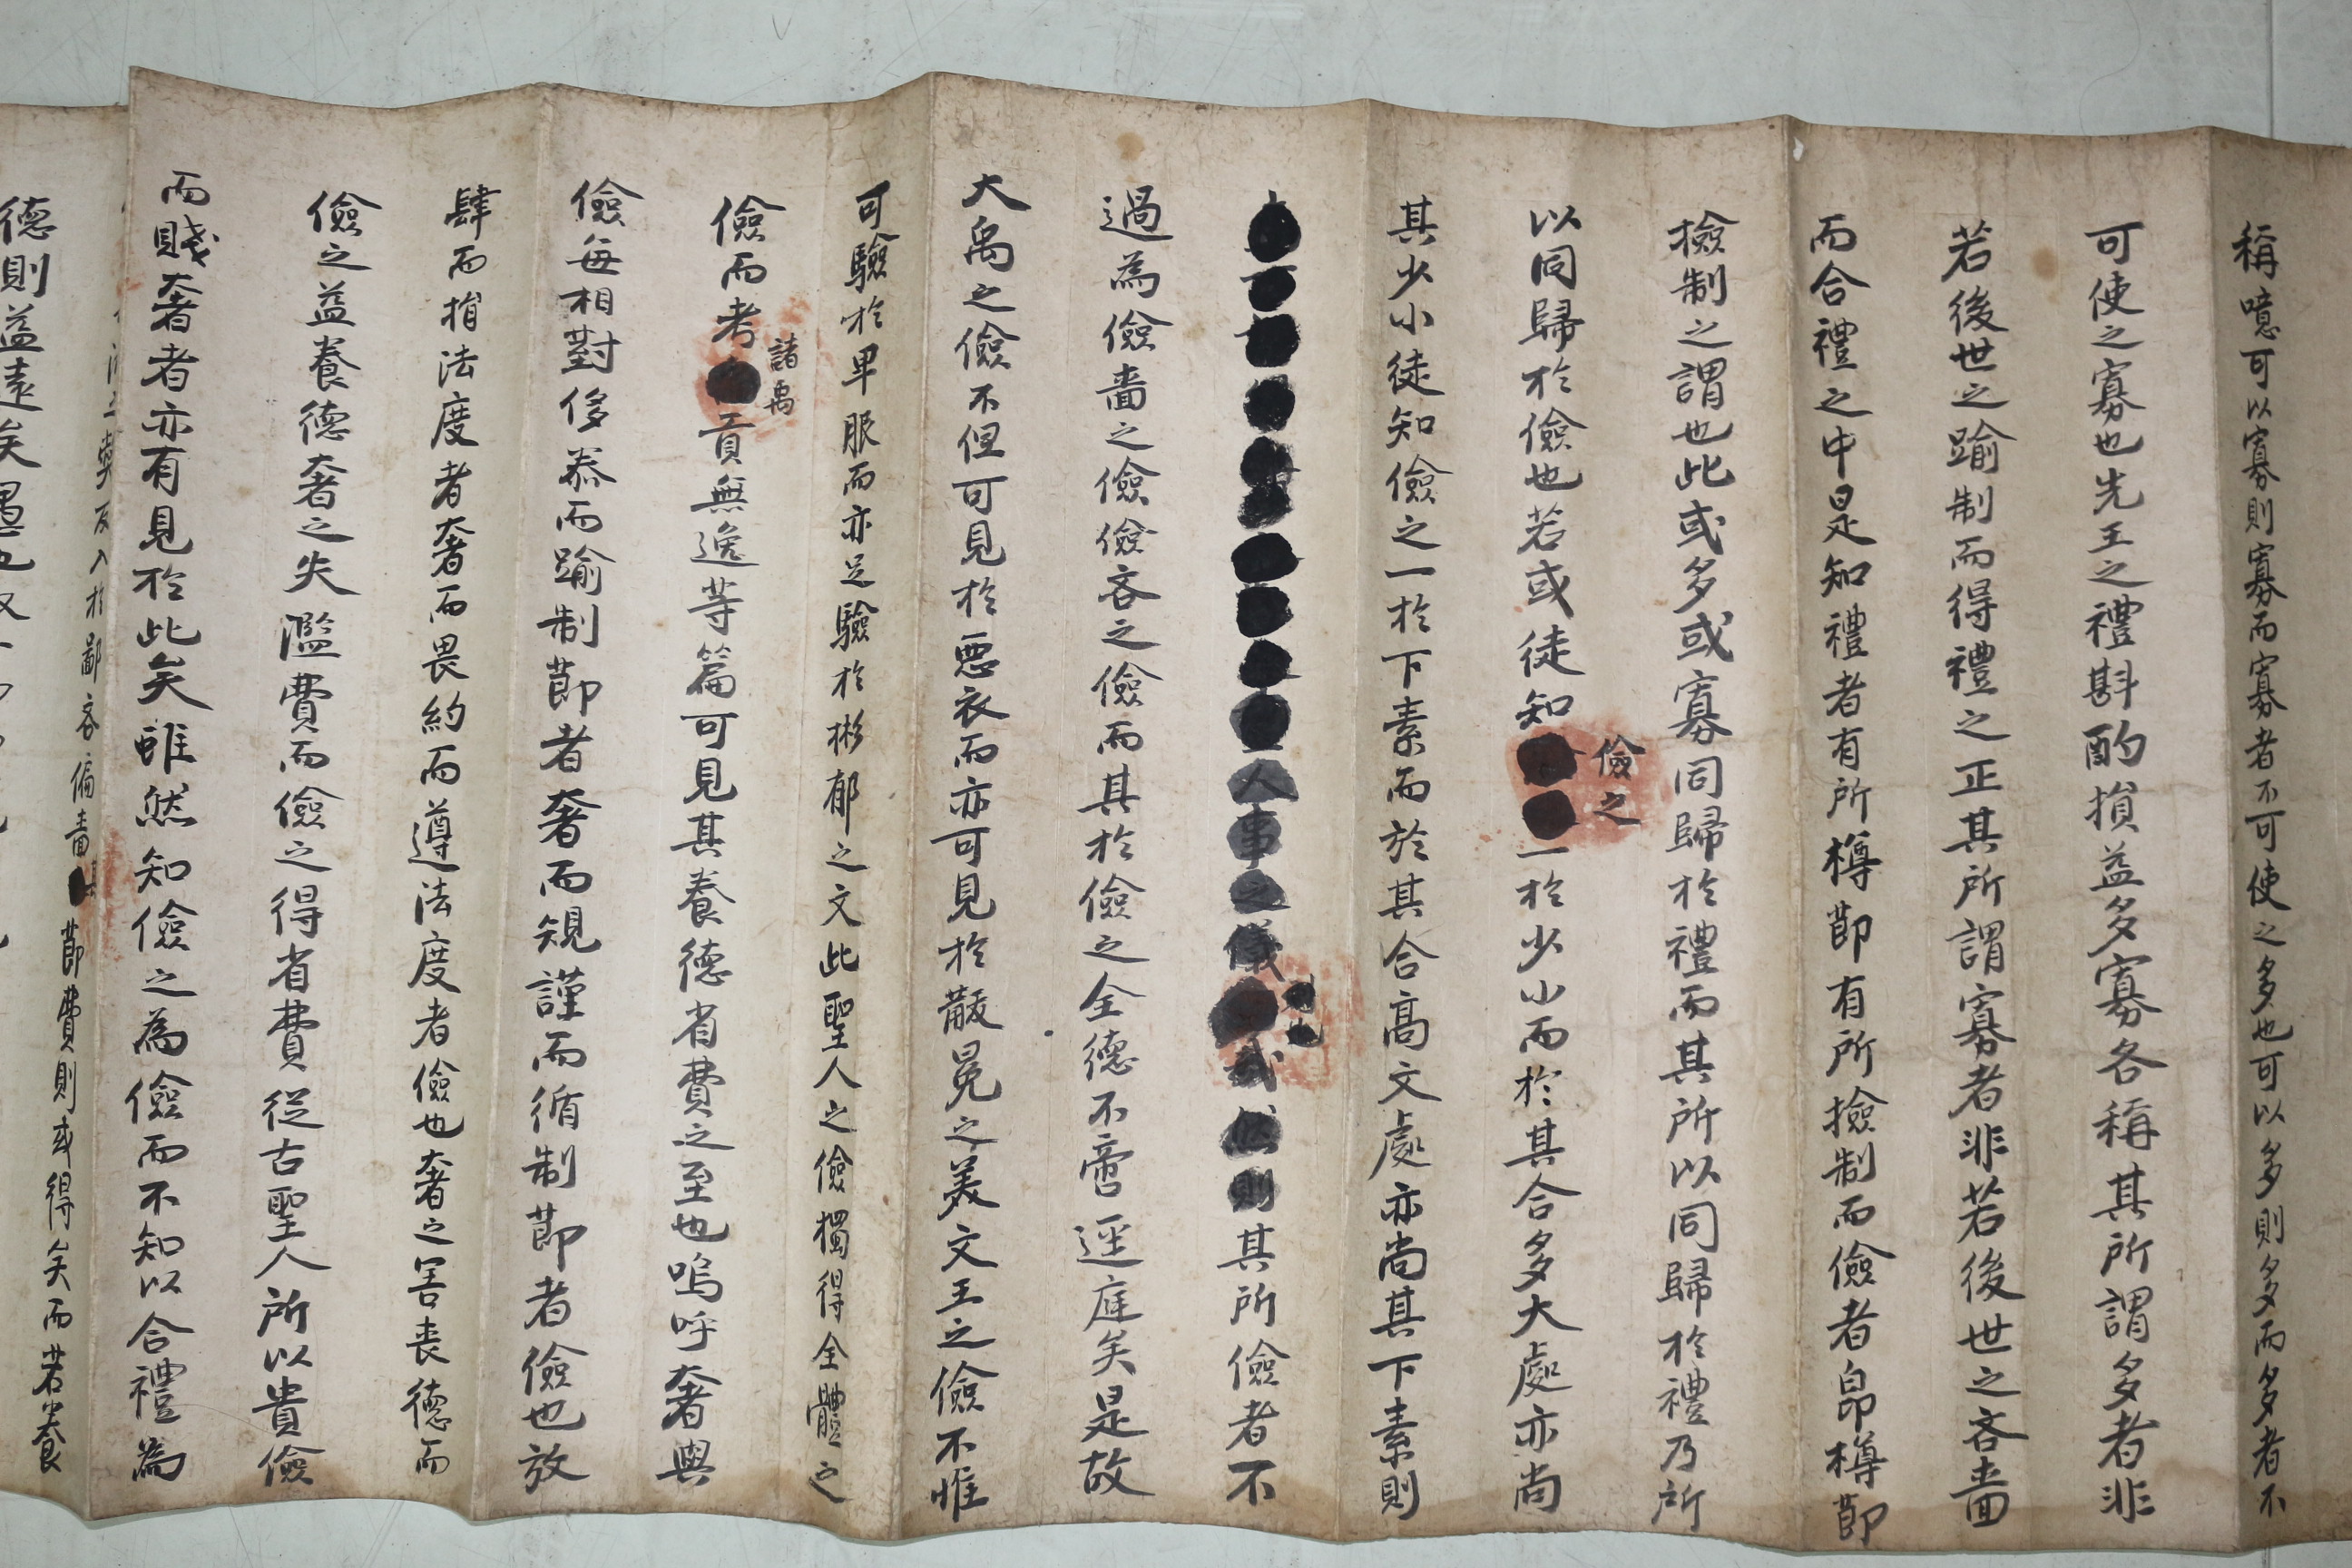 稱噫可以寡則寡而寡者不可使之多也可以多則多而多者不
可使之寡也先王之禮斟酌損益多寡各稱其所謂多者非
若後世之踰制而得禮之正其所謂寡者非若後世之吝嗇
而合禮之中是知禮者有所樽節有所撿制而儉者卽樽節
檢制之謂也此或多或寡同歸於禮而其所以同歸於禮乃所
以同歸於儉也若或徒知儉之一於少小而於其合多大處亦尚
其少小徒知儉之一於下素而於其合高文處亦尚其下素則
其所儉者不
過為儉嗇之儉儉吝之儉而其於儉之全德不啻逕庭矣是故
大禹之儉不但可見於惡衣而亦可見於黻冕之美文王之儉不惟
可驗於卑服而亦足驗於彬郁之文此聖人之儉獨得全體之
儉而考諸禹貢無逸等篇可見其養德省費之至也嗚呼奢與
儉每相對侈泰而踰制節者奢而規謹而循制節者儉也放
肆而捐法度者奢而畏約而遵法度者儉也奢之害喪德而
儉之益養德奢之失濫費而儉之得省費從古聖人所以貴儉
而賤奢者亦有見於此矣雖然知儉之為儉而不知以合禮為
反入於鄙吝偏嗇節費則或得矣而若養
德則益遠矣